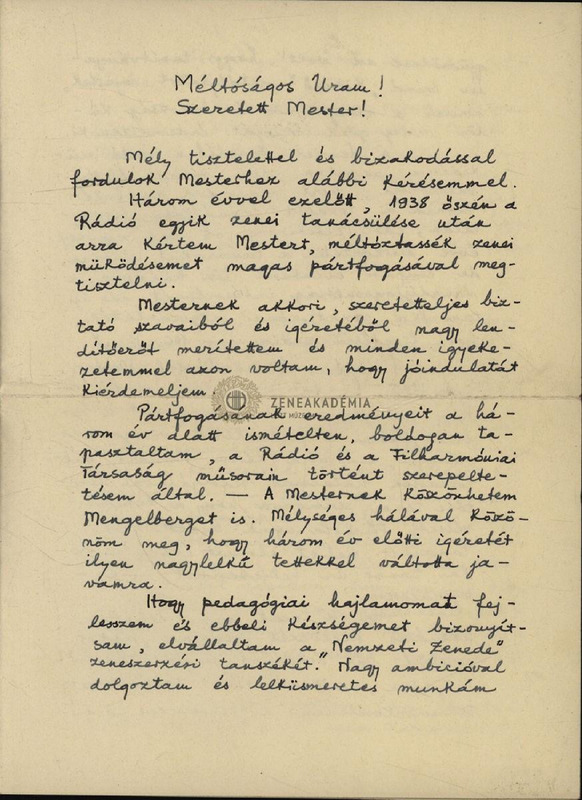 Méltóságos Uram!
Szeretett Mester!
Mély tisztelettel és bizakodással
fordulok Mesterhez alábbi kérésemmel.
Három évvel ezelőtt, 1938 őszén a
Rádió egyik zenei tanácsülése után
arra kértem Mestert, méltóztassék zenei
működésemet magas pártfogásával meg-
tisztelni.
Mesternek akkori, szeretetteljes biz-
tató szavaiból és igéretéből nagy len-
dítőerőt merítettem és minden igyeke-
zetemmel azon voltam, hogy jóindulatát
kiérdemeljem.
ZENEAKADÉMIA
Pártfogásának eredményeit a há-
rom év alatt ismételten, boldogan ta-
pasztaltam, a Rádió és a Filharmóniai
Társaság műsorain történt szerepelte-
tésem által. — A Mesternek köszönhetem
Mengelberget is. Mélységes hálával köszö-
nöm meg, hogy három év előtti igéretét
ilyen nagylelkű tettekkel váltotta ja-
vamra.
Hogy pedagógiai hajlamomat fej-
lesszem és ebbeli készségemet bizonyít-
sam, elvállaltam a "Nemzeti Zenede"
zeneszerzési tanszékét. Nagy ambicióval
dolgoztam és lelkiismeretes munkám